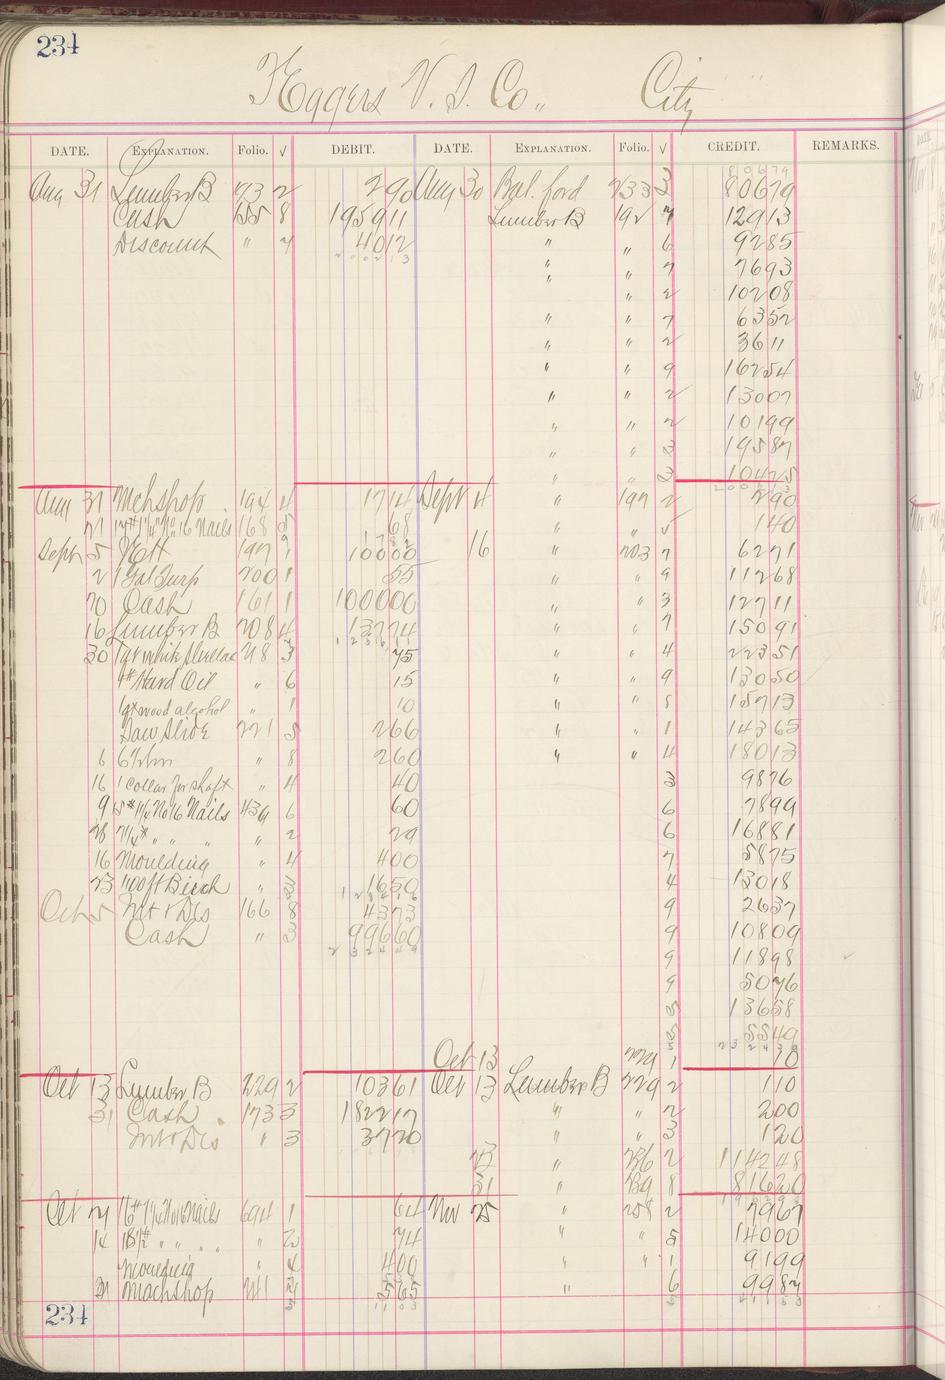 234
Eggers V. S. Co., City
DATE. EXPLANATION. Folio. √ DEBIT. DATE. EXPLANATION. Folio. √ CREDIT. REMARKS.
80679
Aug 31 Lumber B 173 2 290 Aug 30 Bal. ford 233 80679
Cash 155 8 195911 Lumber B 192 7 12913
Discount " 7 4012 " " 6 9285
200213
" " 7 7693
" " 2 10208
" " 7 6352
" " 2 3611
" " 9 16254
" " 2 13007
" " 2 10199
" " 3 19587
" " 3 10425
200213
Aug 31 Mchshop 194 4 1714 Sept 4 " 197 2 290
21 17# 1¼" No 16 Nails 168 5 68 " " 140
1782
Sept 5 Nett 197 1 10000 16 " 203 7 6271
2 1 Gal Turp 200 1 55 " " 9 11268
20 Cash 161 1 100000 " " 3 12711
16 Lumber B 208 4 13774 " " 7 15091
30 1 qt white Shellac 218 3 75 " " 4 22351
1# Hard Oil " 6 15 " " 9 13050
1 qt wood alcohol " 1 10 " " 5 15713
Saw Slide 221 5 266 " " 1 14365
6 6 hrs " 8 260 " " 4 18013
16 1 collar for shaft " 4 40 3 9876
9 15# 1¼ No 16 Nails 439 6 60 6 7899
28 7¼# " " " " 2 29 6 16881
16 Moulding " 4 400 7 5875
23 1100 ft Birch " 1650 4 13018
Oct 5 Int & Dis 166 8 4373 9 2637
Cash " 3 99660 9 10809
232449
9 11898
9 5076
5 13658
5 5549
232439
Oct 13 229 1 10
Oct 13 Lumber B 229 2 10361 Oct 13 Lumber B 229 2 110
31 Cash 173 3 182217 " " 2 200
Int & Dis " 3 3720 " " 3 120
23 " 236 2 114248
31 " 8 81620
Oct 21 16# 1¼ No 16 Nails 694 1 64 Nov 25 " 258 2 7967
14 18½# " " " " 2 74 " " 5 14000
Moulding 4 400 " " 1 9199
31 Machshop 241 565 " 6 9987
1103 41153
234